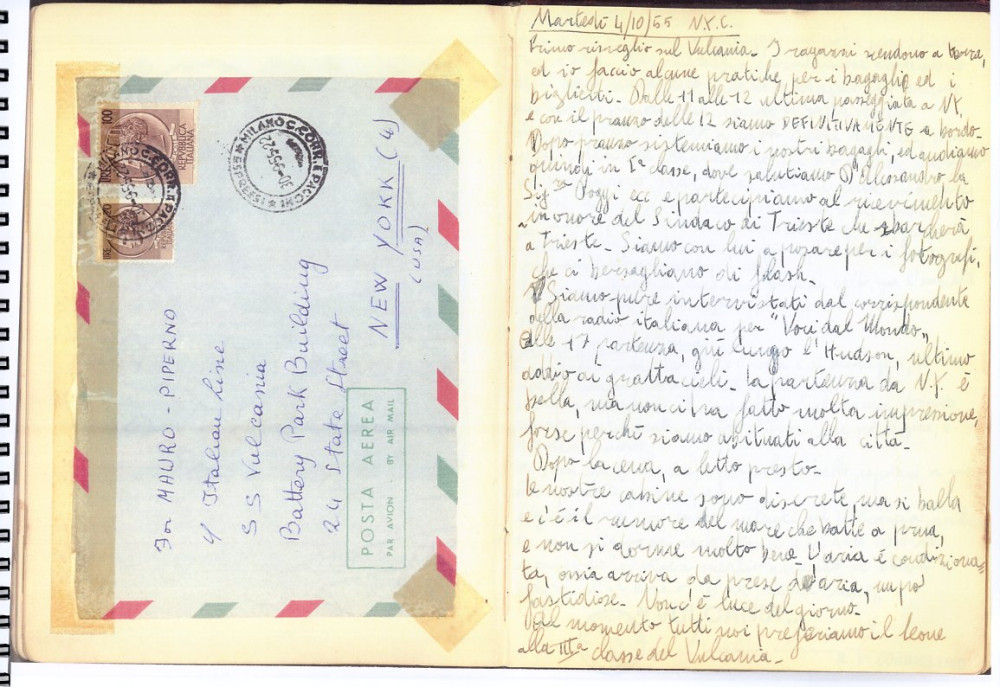 100
REPUBBLICA
ITALIANA
MILANO C. CORR. E PACCHI
ESPRESSI
NEW YORK (4)
(USA)
For MAURO - PIPERNO
c/ Italian line
SS Vulcania
Battery Park Building
24 State Street
POSTA AEREA
PAR AVION - BY AIR MAIL
Martedì 4/10/55 N.Y.C.
Primo risveglio sul Vulcania. I ragazzi scendono a terra,
ed io faccio alcune pratiche per i bagagli ed i
biglietti. Dalle 11 alle 12 ultima passeggiata a N.Y.
e con il pranzo delle 12 siamo DEFINITIVAMENTE a bordo.
Dopo pranzo sistemiamo i nostri bagagli, ed andiamo
quindi in Iª classe, dove salutiamo D'Alessandro, la
Sig.ra Poggi ecc e partecipiamo al ricevimento
in onore del Sindaco di Trieste che sbarcherà
a Trieste. Siamo con lui a posare per i fotografi,
che ci bersagliano di flash.
Siamo pure intervistati dal corrispondente
della radio italiana per "Voci dal Mondo"
Alle 17 partenza, giù lungo l'Hudson, ultimo
addio ai grattacieli. La partenza da N.Y. è
bella, ma non ci ha fatto molta impressione,
forse perchè siamo abituati alla città.
Dopo la cena, a letto presto.
Le nostre cabine sono discrete, ma si balla
e c'è il rumore del mare che batte a prua,
e non si dorme molto bene. L'aria è condiziona=
ta, ossia arriva da prese d'aria, un pò
fastidiose. Non c'è luce del giorno.
Al momento tutti noi preferiamo il leone
alla IIIa classe del Vulcania.